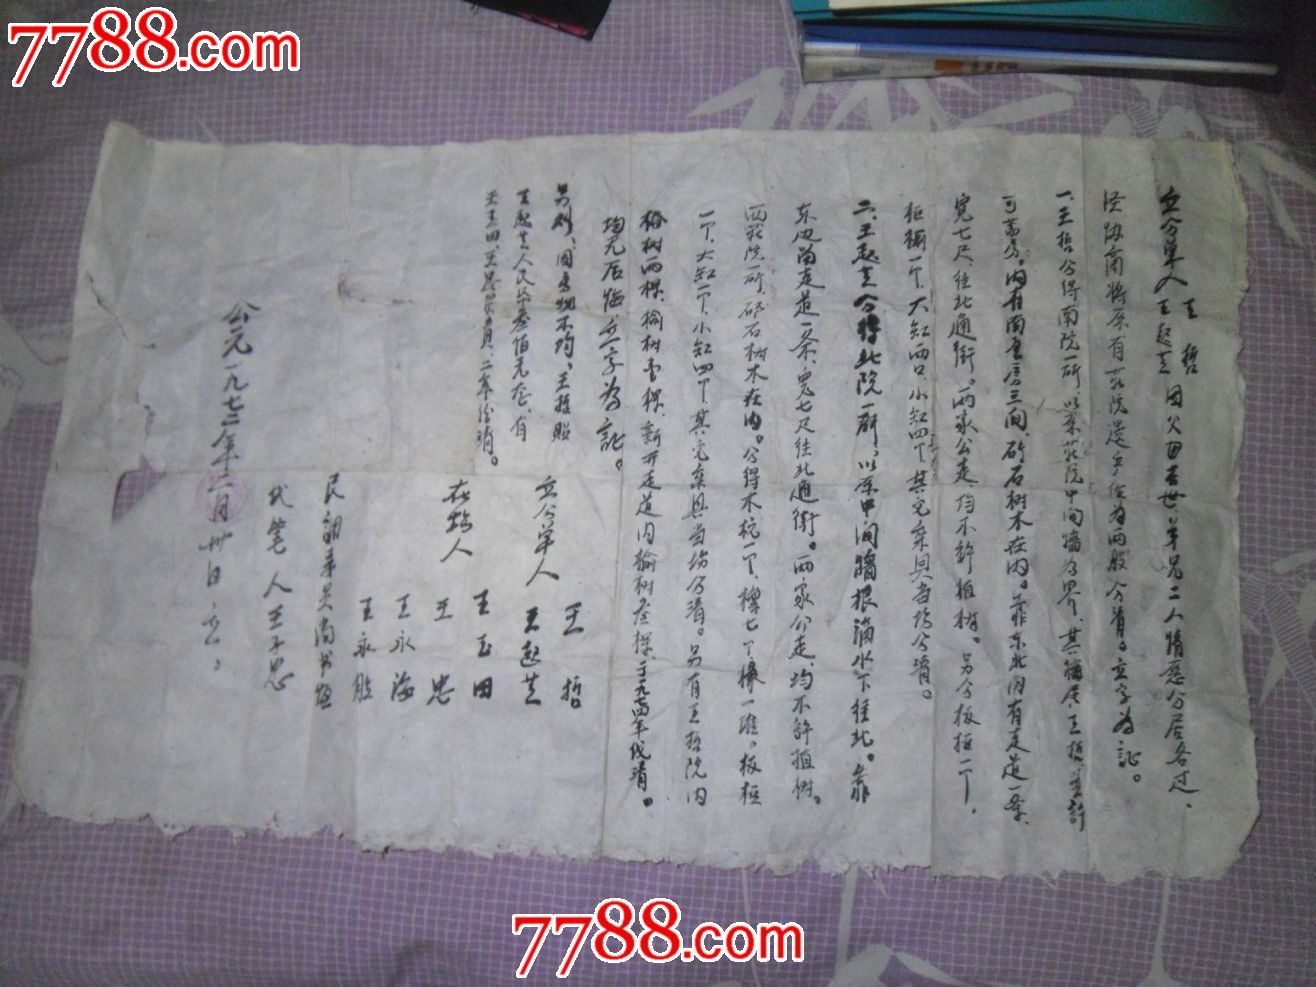 7788.com
立分单人 王哲
王起芝 因父母去世，弟兄二人情愿分居各过，
经协商将原有庄院遗产作为两股分清。立字为证。
一、王哲分得南院一所，以原庄院中间墙为界，其墙属王哲，并许
可盖房。内有南屋房三间，砖石树木在内。靠东北内有走道一条，
宽七尺，往北通街。两家公走，均不许植树。另分板柜一个，
柜橱一个，大缸两口，小缸四个，其它家具当场分清。
二、王起芝分得北院一所，以原中间墙根滴水下往北。靠
东边留走道一条，宽七尺往北通街。两家公走，均不许植树。
西庄院一所，砖石树木在内。分得木杭一个，檩七个，椽一堆。板柜
一个，大缸一个，小缸四个，其它家具当场分清。另有王哲院内
榆树两棵，新开走道内榆树叁棵，于一九七四年伐清。
均无后悔，立字为证。
另列，因产物不均，王哲贴
王起芝人民币叁佰元整，有
王玉田、王忠负责，二年份清。
立分单人 王哲
王起芝
在场人 王玉田
王忠
王永海
王永胜
民调委员 尚书恒
代笔人 王子忠
公元一九七二年二月卅日立
7788.com